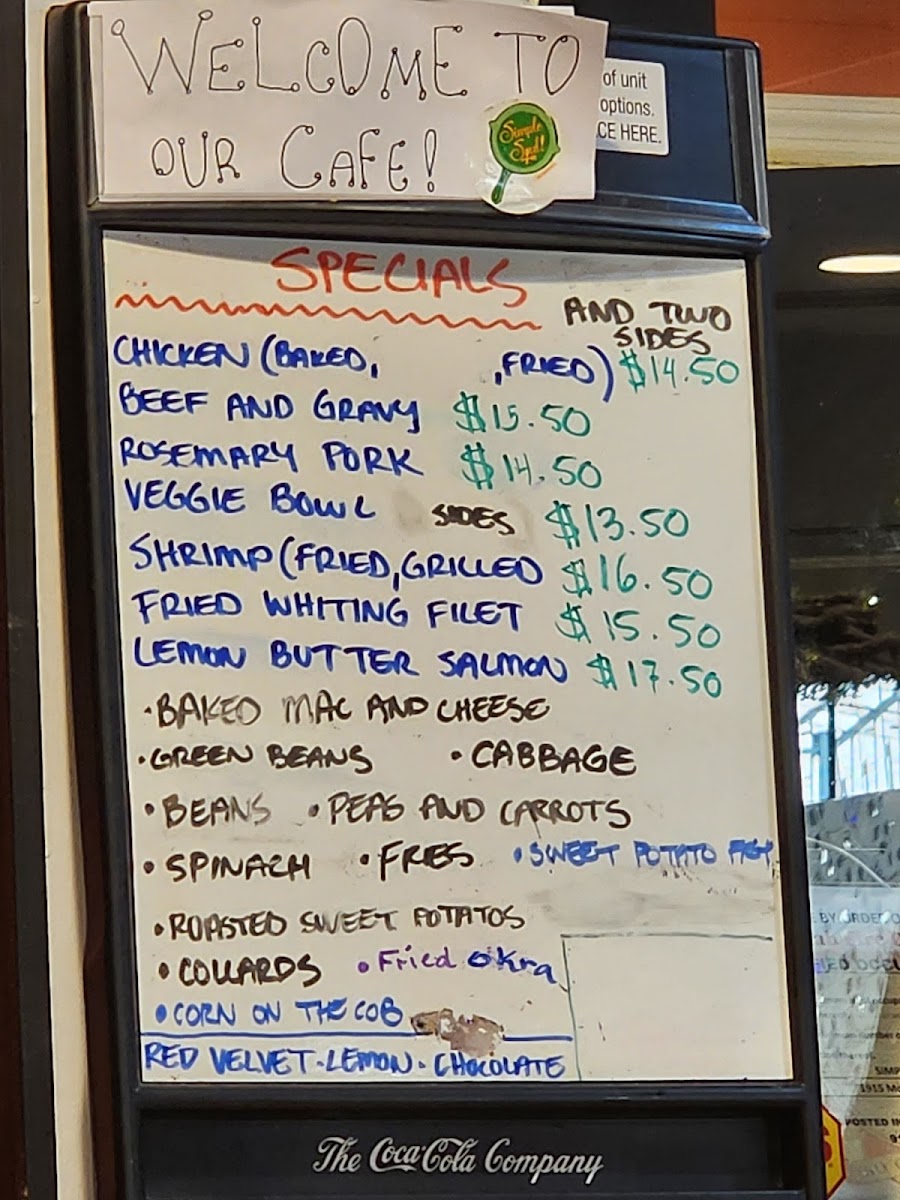 WELCOME TO
OUR CAFE!
Simple
Spot!
of unit
options.
CE HERE.
SPECIALS
AND TWO
SIDES
CHICKEN (BAKED, ,FRIED) $14.50
BEEF AND GRAVY $15.50
ROSEMARY PORK $14.50
VEGGIE BOWL SIDES $13.50
SHRIMP (FRIED, GRILLED $16.50
FRIED WHITING FILET $15.50
LEMON BUTTER SALMON $17.50
·BAKED MAC AND CHEESE
·GREEN BEANS ·CABBAGE
·BEANS ·PEAS AND CARROTS
·SPINACH ·FRIES ·SWEET POTATO
·ROASTED SWEET POTATOS
·COLLARDS ·Fried OKra
·CORN ON THE COB
RED VELVET·LEMON·CHOCOLATE
The Coca-Cola Company
BY ORDER O
1915 Mo
POSTED IN